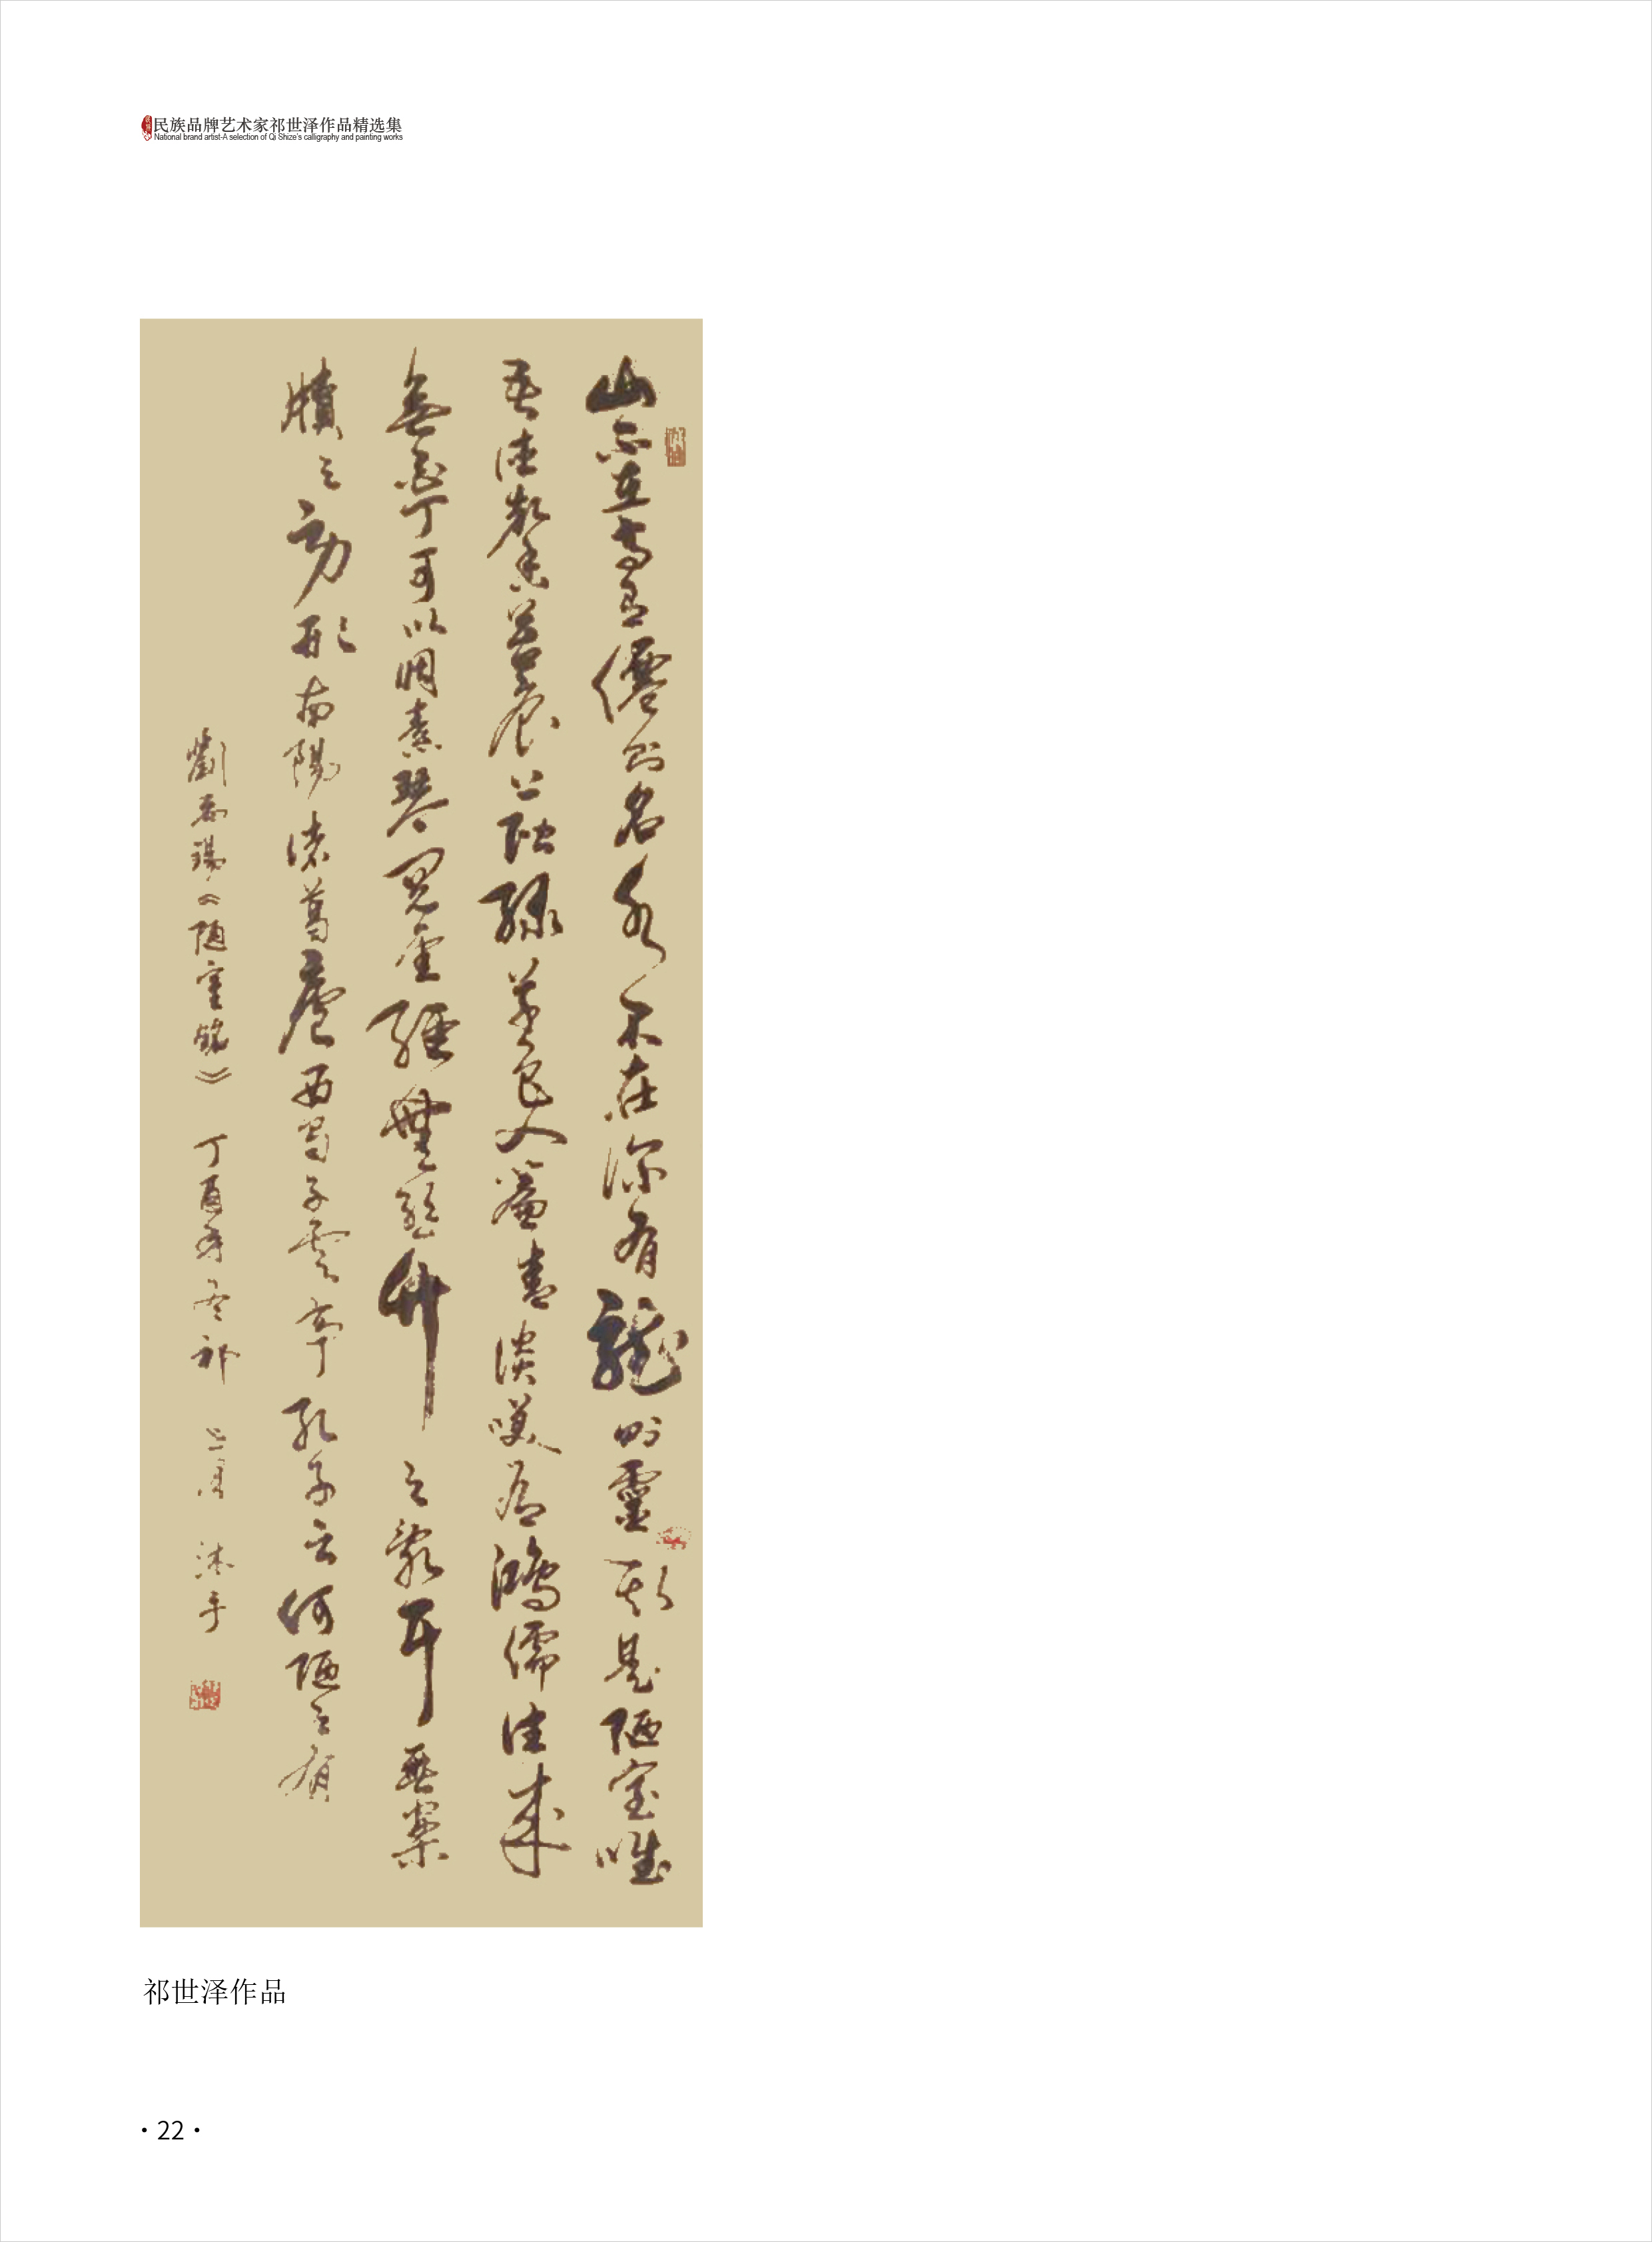 民族品牌艺术家祁世泽作品精选集
National brand artist-A selection of Qi Shize's calligraphy and painting works
山不在高有僊則名水不在深有龍則靈斯是陋室唯
吾德馨苔痕上階綠草色入簾青談笑有鴻儒往來
無白丁可以調素琴閱金經無絲竹之亂耳無案
牘之勞形南陽諸葛廬西蜀子雲亭孔子云何陋之有
劉禹錫《陋室銘》 丁酉年冬祁 沐手
祁世泽作品
· 22 ·